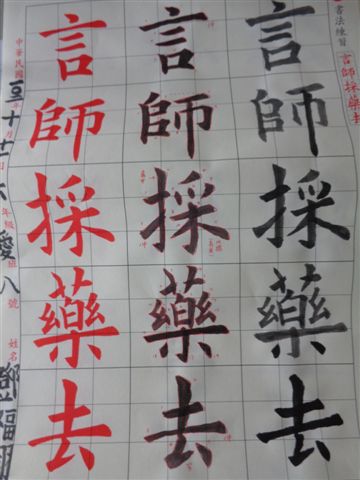 書法練習
言師採藥去
言師採藥去
言師採藥去
言師採藥去
中華民國年十月十一日六年級愛班八號 姓名福